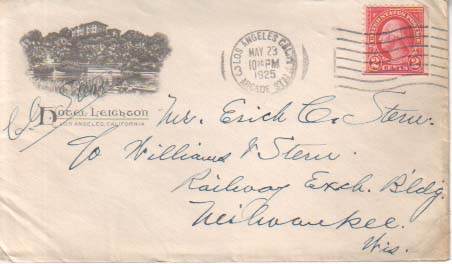 LOS ANGELES CALIF.
MAY 23
10 PM
1925
ARCADE STA.
UNITED STATES POSTAGE
2 CENTS 2
Hotel Leighton
LOS ANGELES, CALIFORNIA
Mr. Erich C. Stern.
℅ Williams & Stern.
Railway Exch. Bldg.
Milwaukee.
Wis.